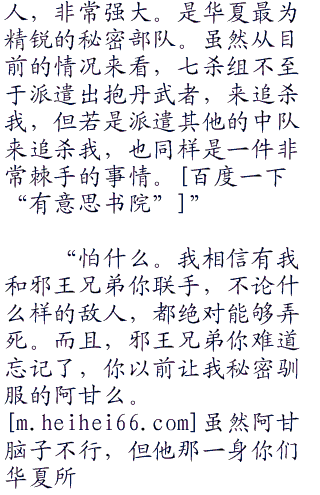 人，非常强大。是华夏最为
精锐的秘密部队。虽然从目
前的情况来看，七杀组不至
于派遣出抱丹武者，来追杀
我，但若是派遣其他的中队
来追杀我，也同样是一件非
常棘手的事情。[百度一下
“有意思书院”]”
“怕什么。我相信有我
和邪王兄弟你联手，不论什
么样的敌人，都绝对能够弄
死。而且，邪王兄弟你难道
忘记了，你以前让我秘密驯
服的阿甘么。
[m.heihei66.com]虽然阿甘
脑子不行，但他那一身你们
华夏所